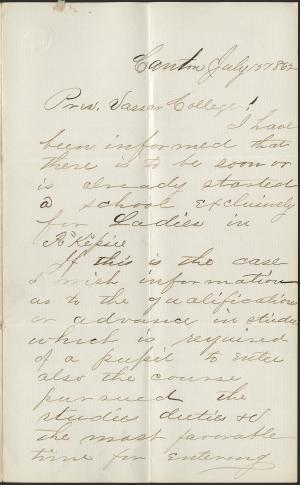 Canton July 15" 1862
Pres. Vassar College!
I have
been informed that
there is to be soon or
is already started
a school exclusively
for Ladies in
Po'Kepsie
If this is the case
I wish information
as to the qualification
or advance in studies
which is required
of a pupil to enter
also the course
pursued the
studies duties &c
the most favorable
time for entering